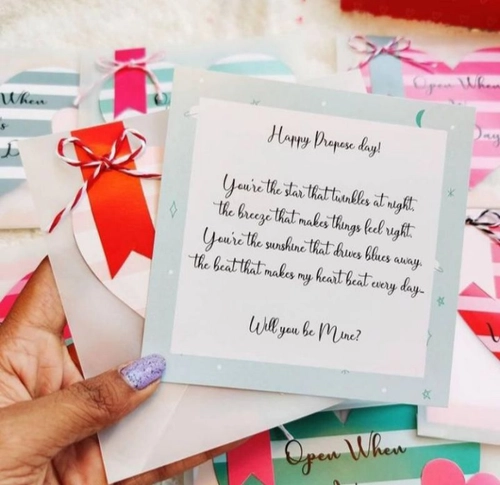 Happy Propose day!
You're the star that twinkles at night,
the breeze that makes things feel right,
You're the sunshine that drives blues away,
the beat that makes my heart beat every day..
Will you be Mine?
When
Open When
Day
Open When